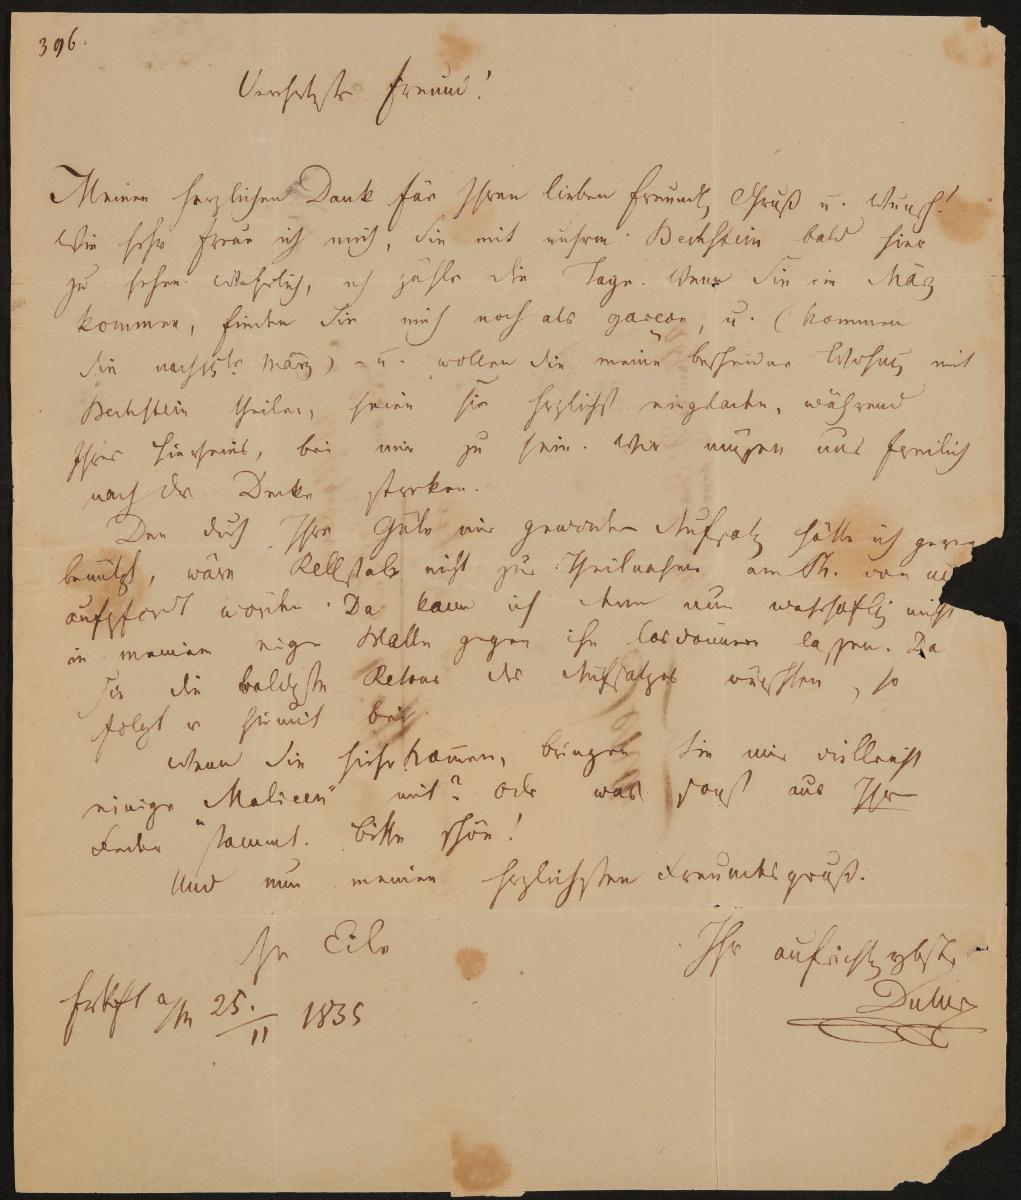 396.
Verehrtester Freund!
Meinen herzlichen Dank für Ihren lieben freundl. Gruß u. Wunsch!
Wie sehr freue ich mich, Sie mit unserm Bechstein bald hier
zu sehen. Wahrlich, ich zähle die Tage. Wenn Sie im März
kommen, finden Sie mich noch als garçon, u. (kommen
Sie nach März) – u. wollen Sie meine bescheidne Wohng mit
Bechstein theilen, seien Sie herzlichst eingeladen, während
Ihres Hierseins, bei mir zu sein. Wir müssen uns freilich
nach der Decke strecken.
Den durch Ihre Güte mir gewordnen Aufsatz hätte ich gerne
benützt, wäre Rellstab nicht zur Theilnahme am Ph. von
aufgefordt worden. Da kann ich denn nun wahrhaftig nicht
in meinem eignen Walle gegen ihn losdonnern lassen. Da
Sie die baldigste Retour des Aufsatzes wünschten, so
folgt er hiemit bei.
Wenn Sie hieher kommen, bringen Sie mir vielleicht
einige "Malicen" mit? Oder was sonst aus Ihrer
Feder stammt. Bitte schön!
Und nun meinen herzlichsten Freundesgruß.
In Eile
Ihr aufrichtig ergebenster
Frkft a/M 25./II 1835
Duller